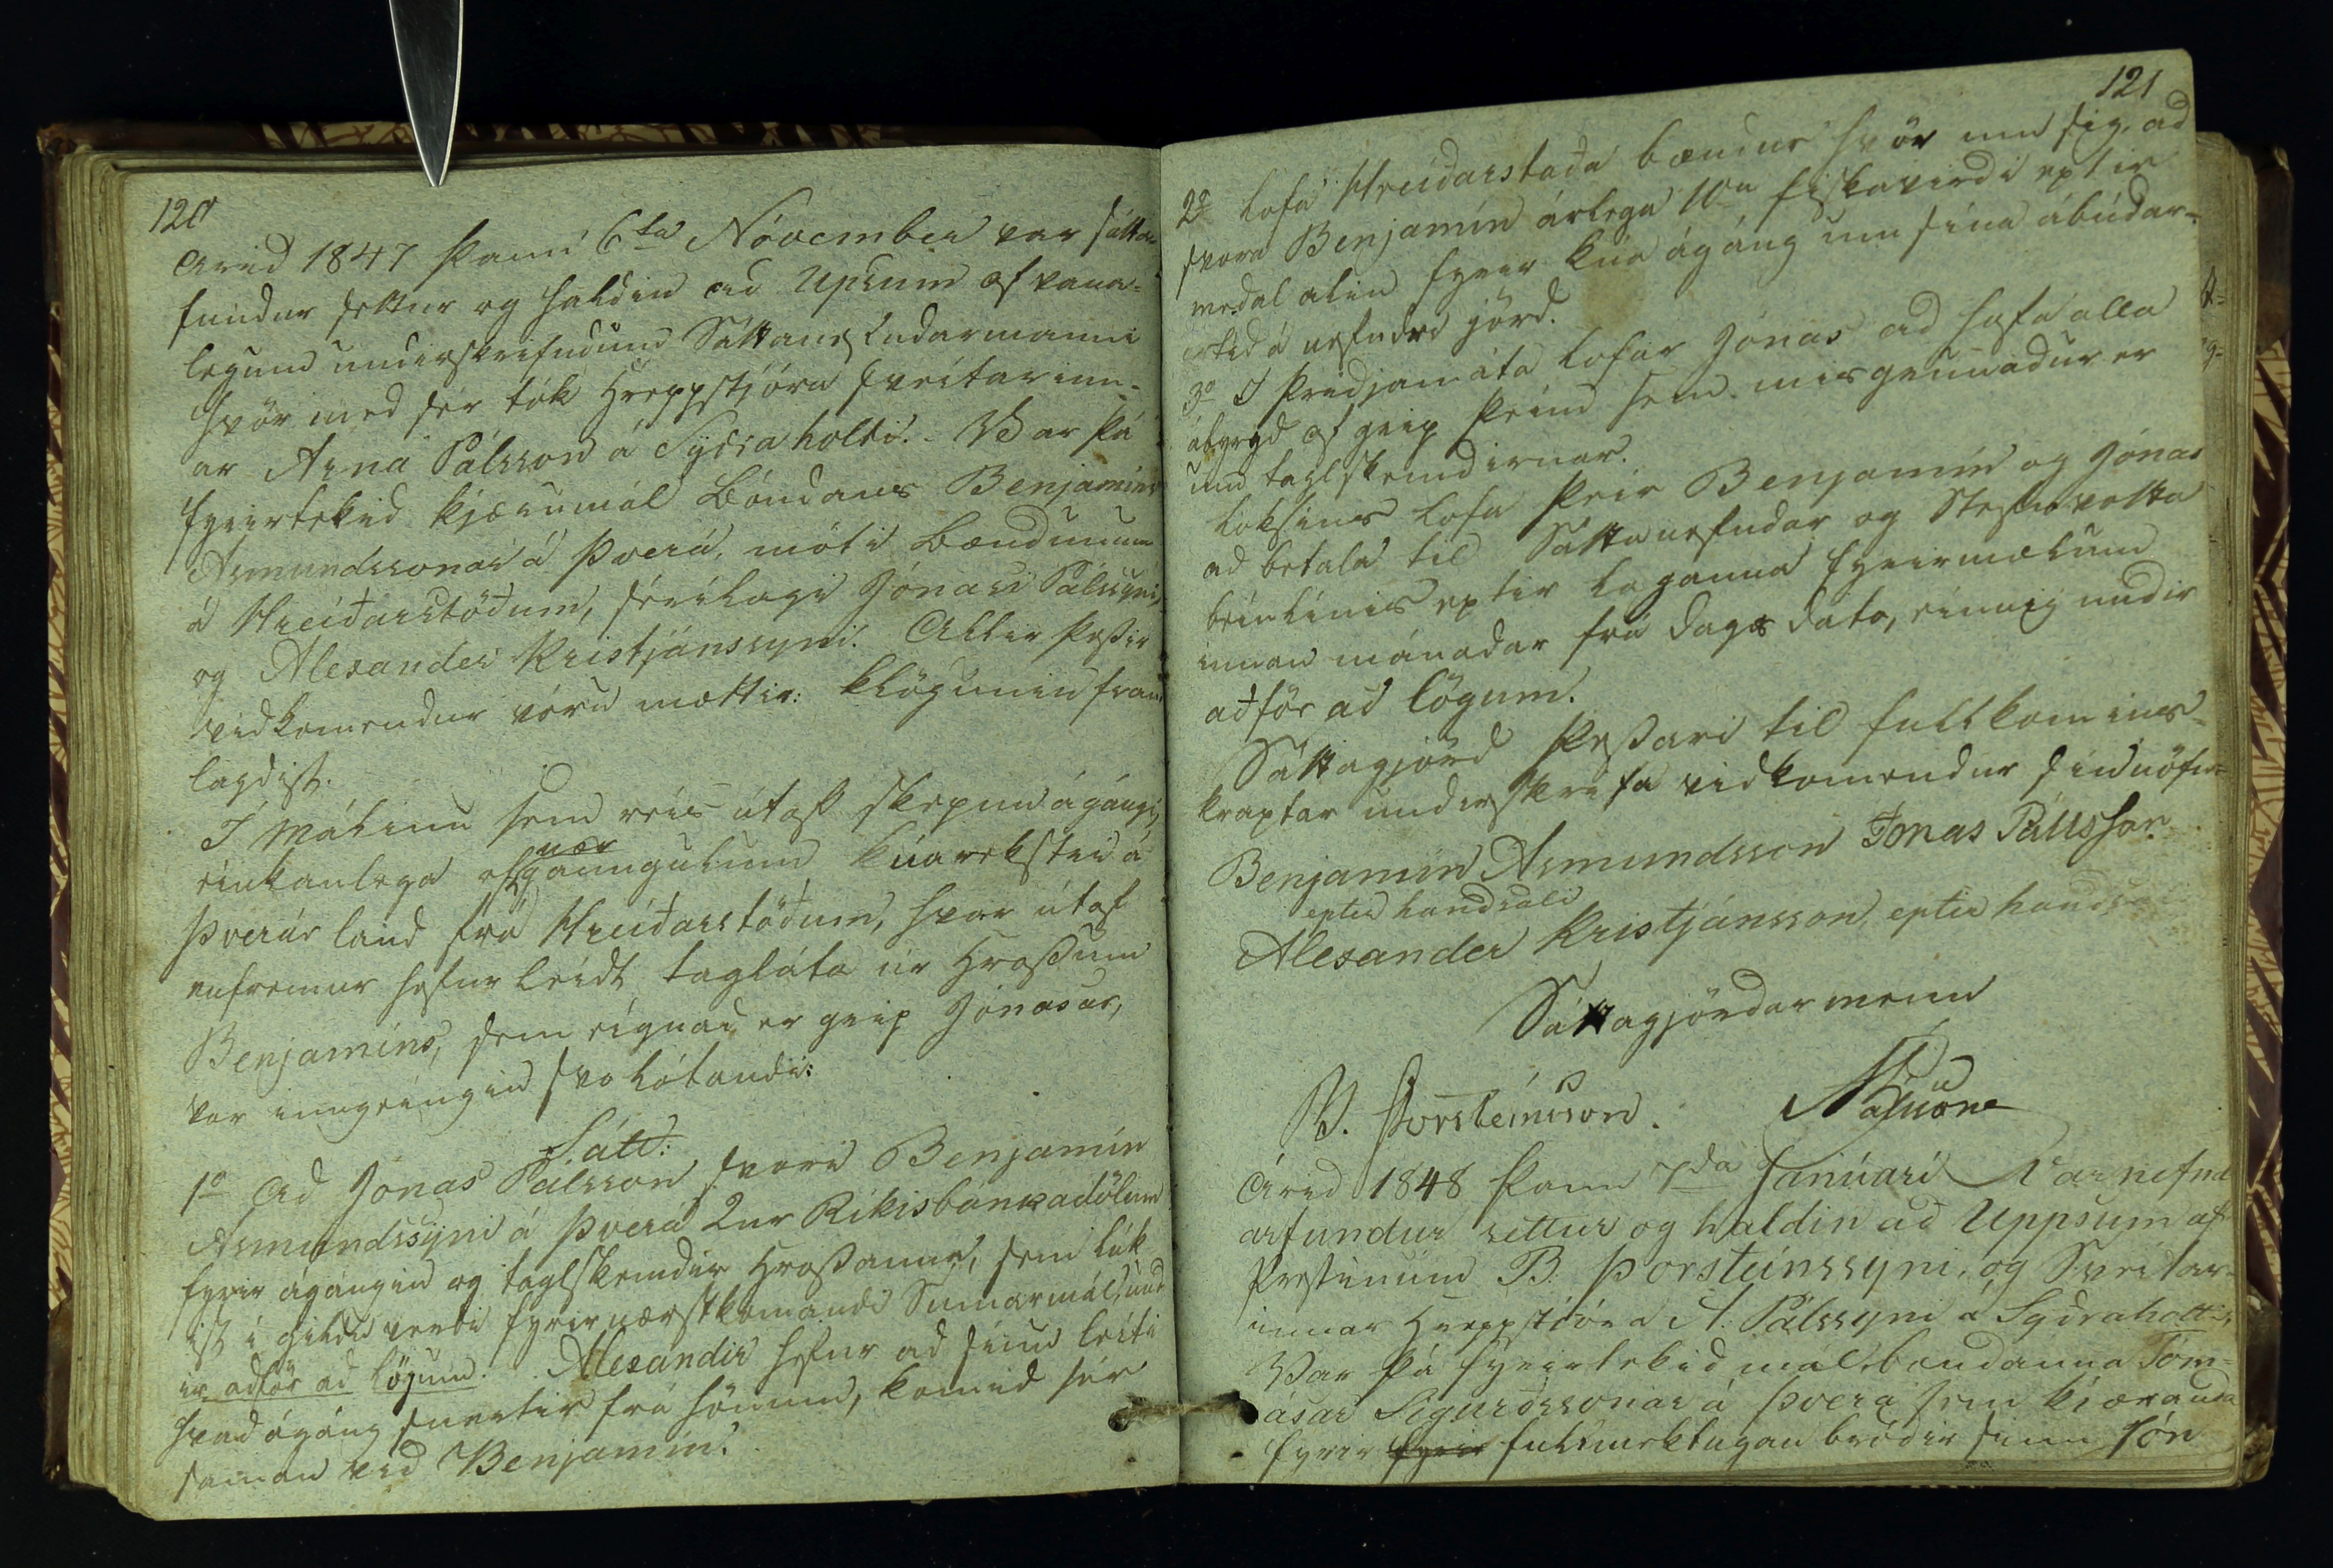 120
Arid 1847 þann 6ta November var sátta
fundur settur og haldin ad Upsum af vana-
legum underskrifudum Sáttanefndarmanni
hvör med sér tók Hreppstjóra sveitarinn-
ar Arna Pálsson á Sydraholti. Var þá
fyrirtekid kjærumál bóndans Benjamíns
Asmundssonar á Þverá, móti bændunum
á Hreiðarstöðum, sérílagi Jónasi Pálssyni,
og Alexander Kristjánssyni. Allir þeßir
vidkomendur vóru mættir: klögunin fram
lagdist.
Í málinu sem reis útaf skepnu ágángi,
einkanlega af nær gaungulum kúarekstri á
Þverár land frá Hreiðarstöðum, hvar útaf
enfremur hefur leidt tagláta úr Hroßum
Benjamíns, sem eignad er greip Jónasar,
var inngeingin svo látandi:
Sátt:
1o Ad Jonas Pálsson svari Benjamín
Asmundssyni á Þverá 2ur Ríkisbánkadölum
fyrir ágángin og taglskemdir Hroßanna, sem lúk
ist í gildu verdi fyrir næstkomandi Sumarmál, und
ir adför ad lögum. Alexander hefur ad sínu leiti
hvad ágáng snertir frá hönum, komid sér
saman vid Benjamín.
121
2o lofa Hreiðarstaða bændur hvör um sig, ad
svara Benjamín árlega 10u fiskavirdi eptir
medal alin fyrir kúa ágáng um sína ábúdar-
tid á nefndri jörd.
3o I þridjamáta lofar Jónas ad hafa alla
ábyrgd af greip þeim sem misgrunadur er
um taglskemdirnar.
loksins lofa þeir Benjamín og Jónas
ad betala til Sáttanefndar og Stefnuvotta
beinlínis eptir laganna fyrirmælum
innan mánadar frá dags dato, einnig undir
aðför að lögum.
Sáttagjörd þeßari til fullkomins
kraptar underskrifa vidkomendur sín nöfn
Benjamín Asmundsson Jonas Pálsson
eptir handsali
Alexander Kristjánsson, eptir handsali
Sáttagjördar menn
B. Þorsteinsson.
Arid 1848 þann 7da Janúari Var nefnd
arfundur settur og haldin ad Uppsum af
Prestinum B. Þorsteinssyni, og Sveitar-
innar Hreppstjóra A. Pálssyni á Sydraholti,
Var þá fyrirtekid mál bændanna Tom-
ásar Sigurdssonar á Þverá sem kjæranda
fyrir fyrir fullmektugan bródir sinn Jón